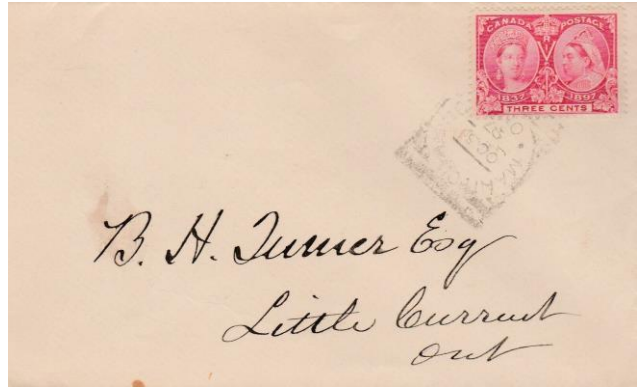 CANADA POSTAGE
1837 1897
THREE CENTS
B. H. Turner Esq
Little Current
Ont